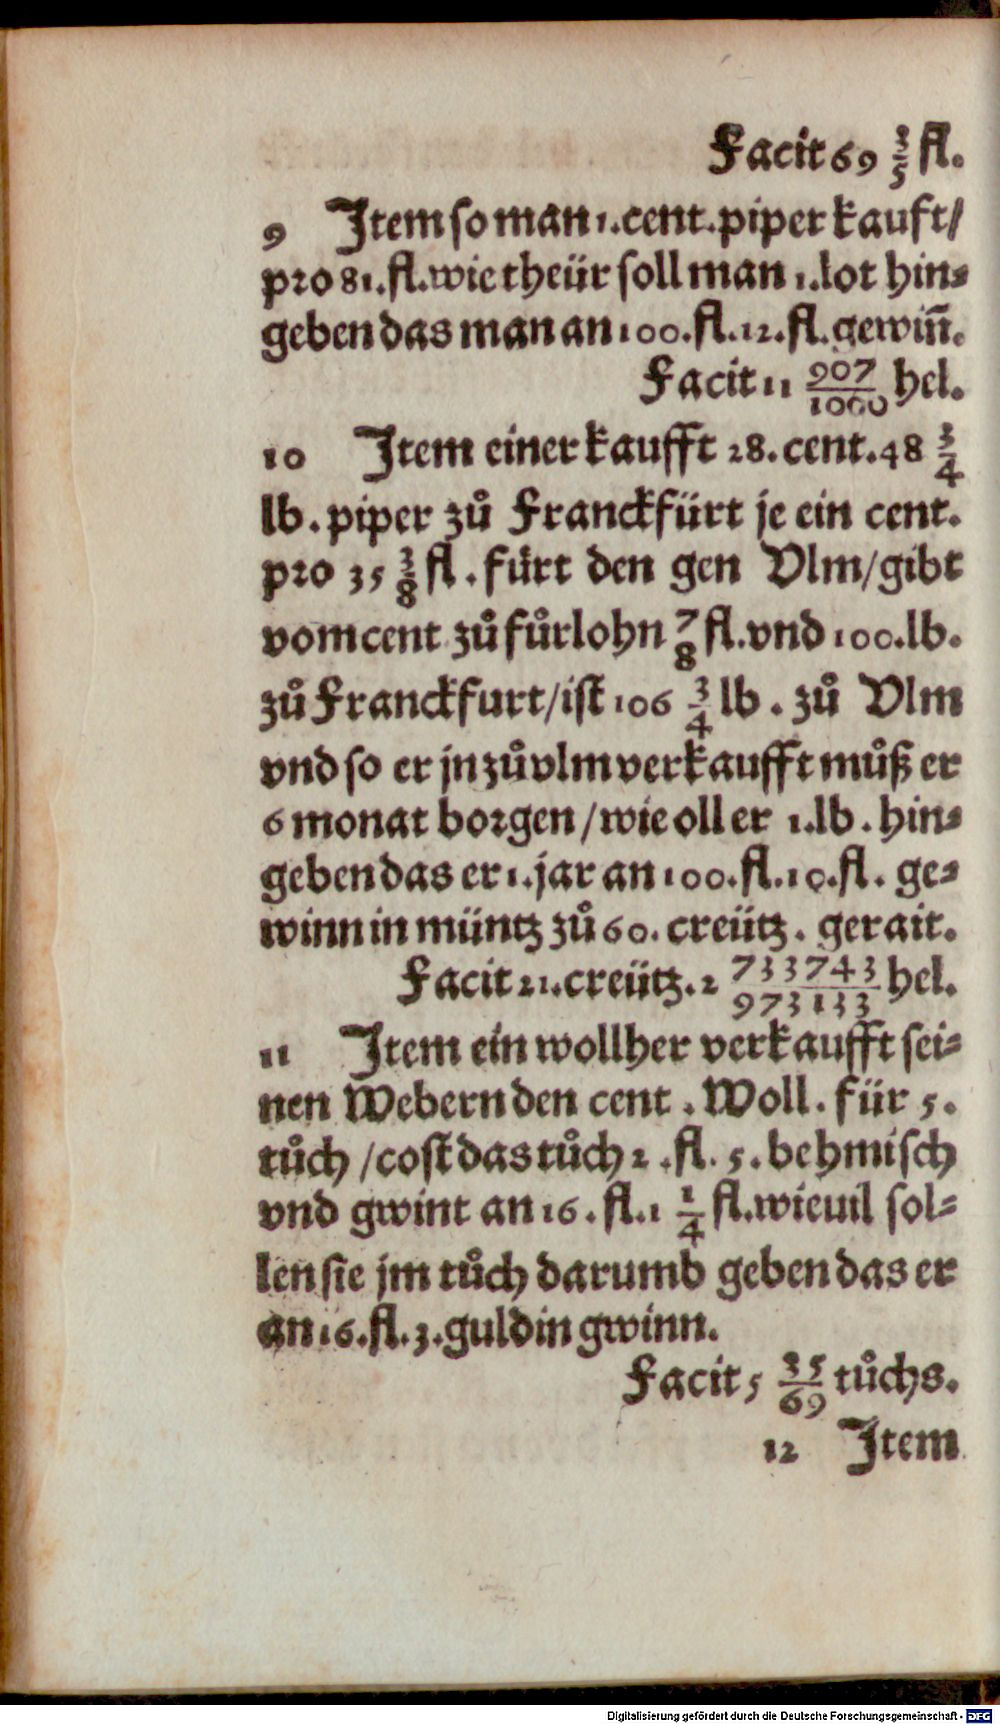 Facit 69 3/5 fl.
9 Item so man 1. cent. piper kauft/
pro 81. fl. wie theür soll man 1. lot hin⸗
geben das man an 100. fl. 12. fl. gewiñ.
Facit 11 907/1000 hel.
10 Item einer kaufft 28. cent. 48 3/4
lb. piper zů Franckfürt je ein cent.
pro 35 3/8 fl. fürt den gen Vlm/gibt
vom cent zů fůrlohn 7/8 fl. vnd 100. lb.
zů Franckfurt/ist 106 3/4 lb. zů Vlm
vnd so er jn zů vlm verkaufft můß er
6 monat borgen/wie oll er 1. lb. hin⸗
geben das er 1. jar an 100. fl. 10. fl. ge⸗
winn in müntz zů 60. creütz. gerait.
Facit 21. creütz. 2 733743/973133 hel.
11 Item ein wollher verkaufft sei⸗
nen Webern den cent. Woll. für 5.
tůch/cost das tůch 2. fl. 5. behmisch
vnd gwint an 16. fl. 1 1/4 fl. wieuil sol⸗
len sie jm tůch darumb geben das er
an 16. fl. 3. guldin gwinn.
Facit 5 35/69 tůchs.
12 Item
Digitalisierung gefördert durch die Deutsche Forschungsgemeinschaft - DFG